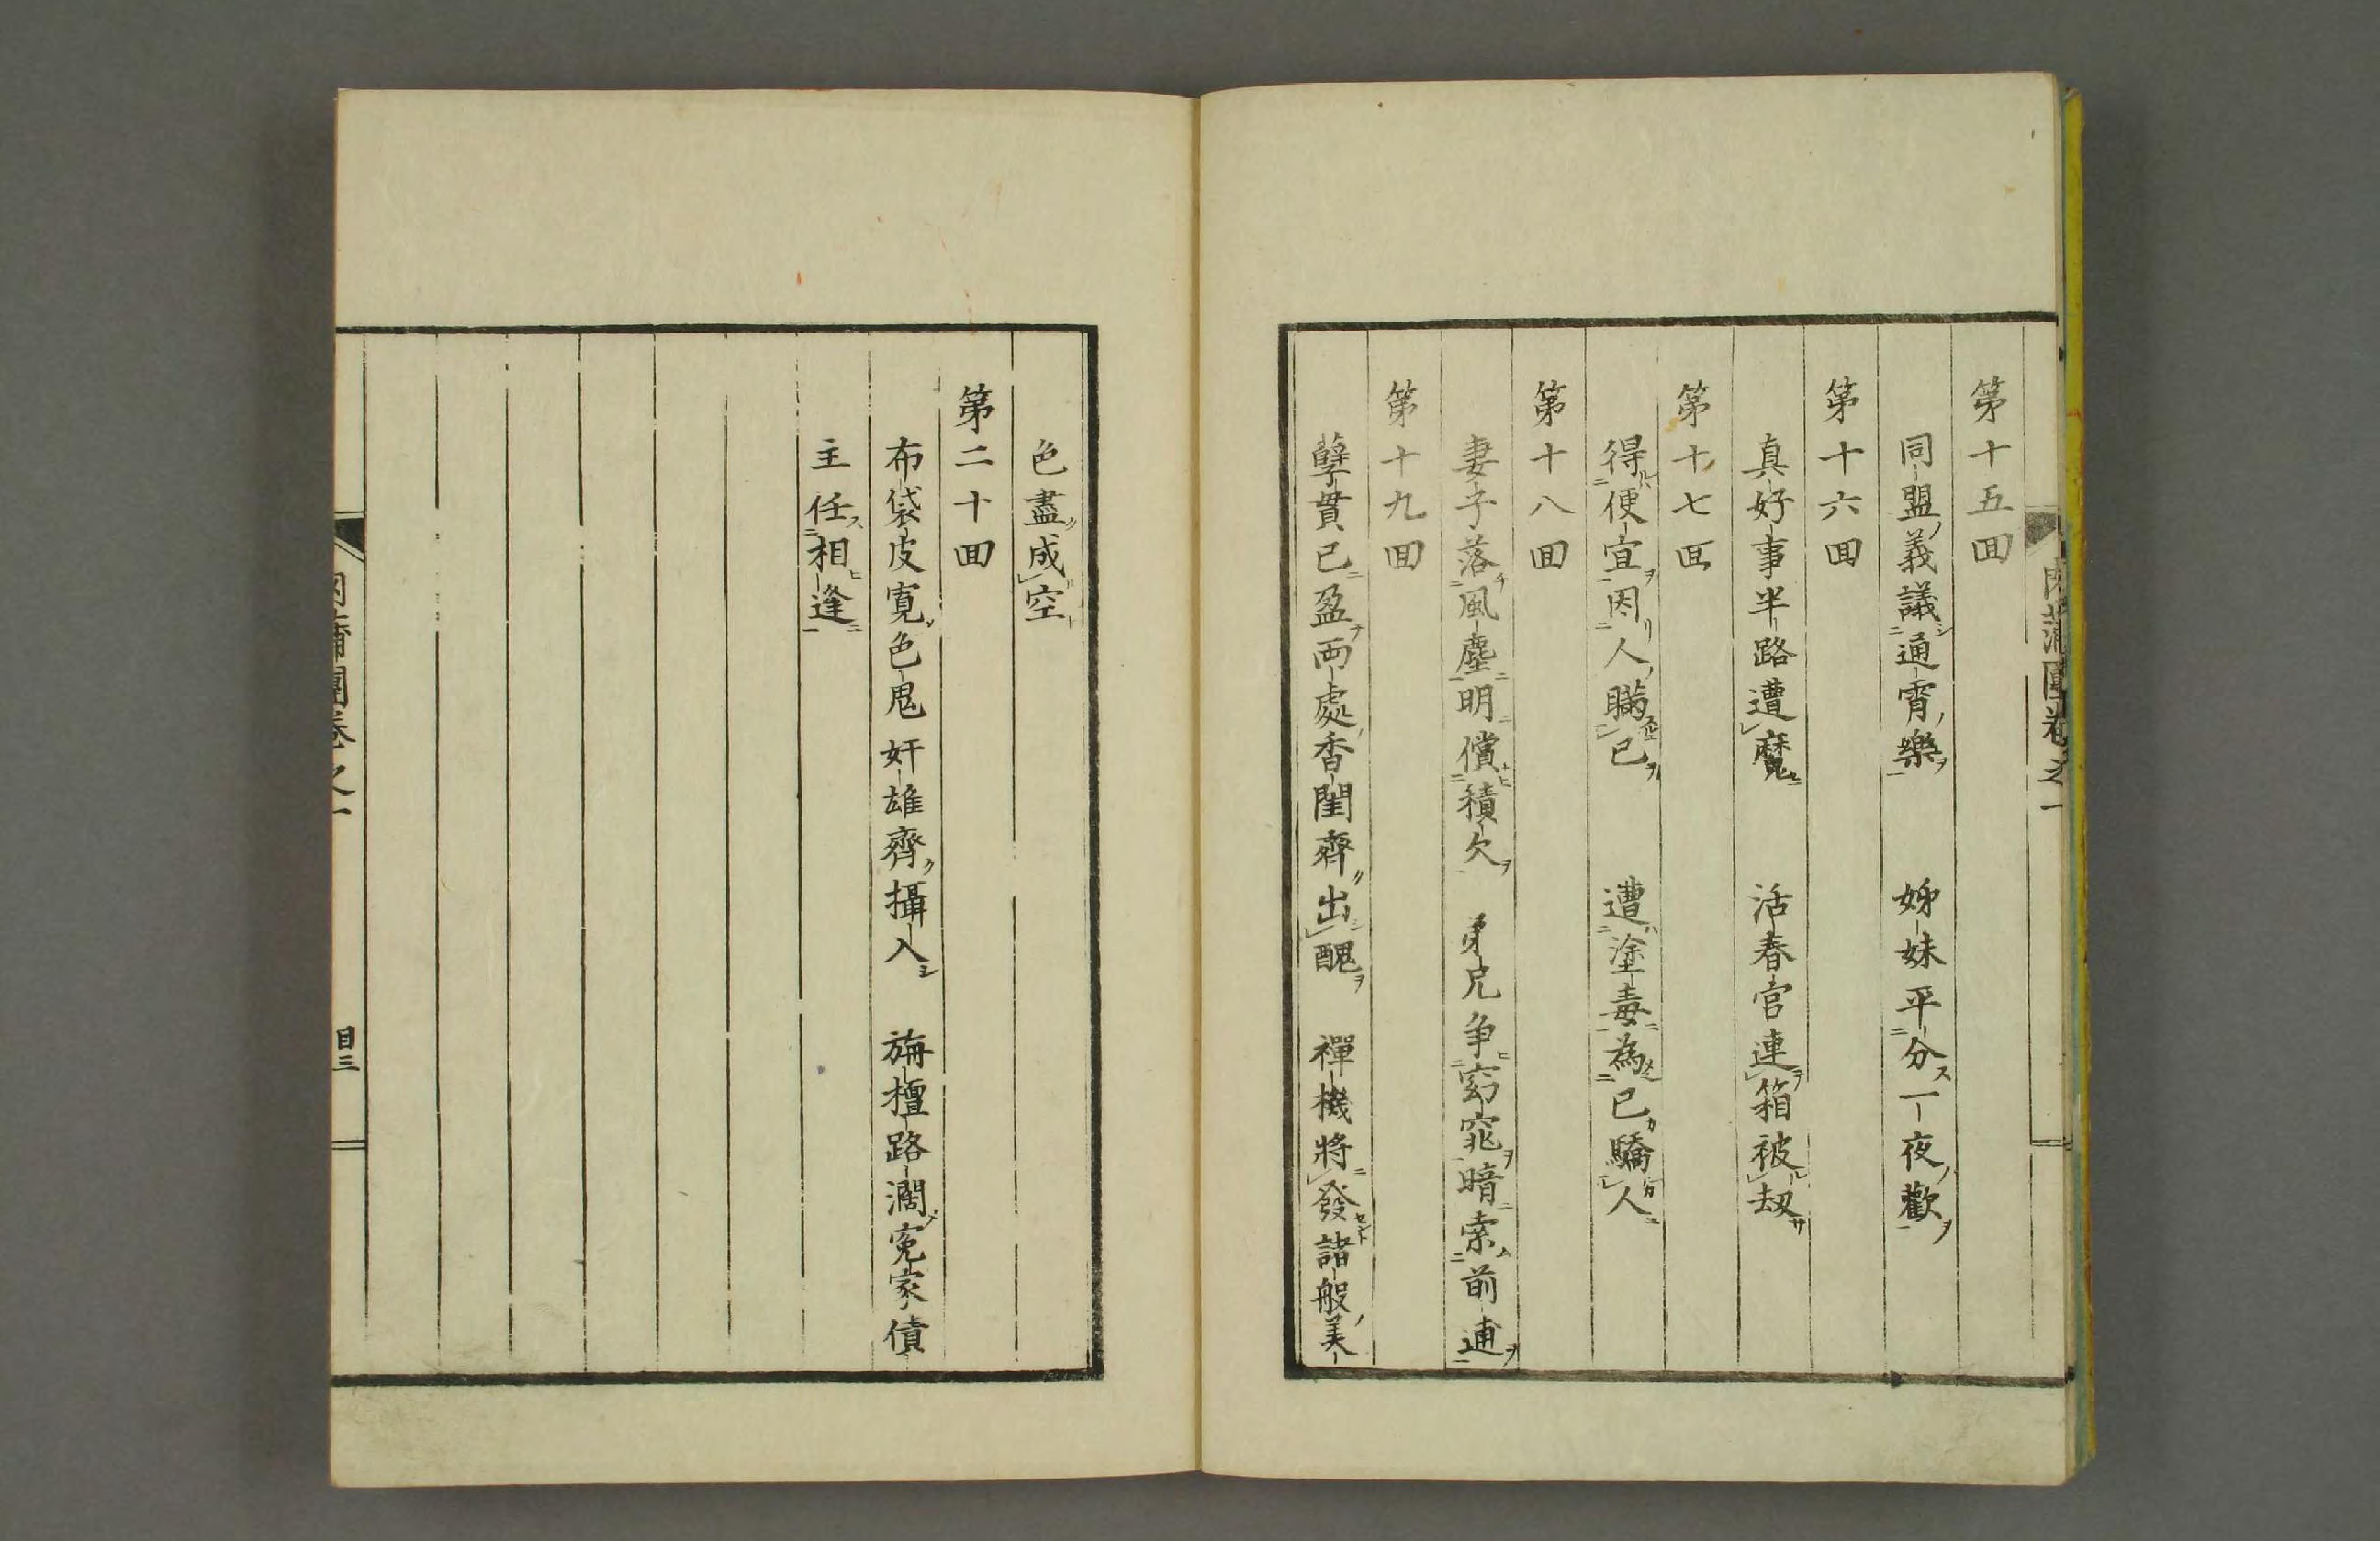 肉蒲團卷之一
第十五回
同盟義議通宵樂 姊妹平分一夜歡
第十六回
真好事半路遭魔 活春宮連箱被刼
第十七回
得便宜因人瞞己 遭塗毒為己驕人
第十八回
妻子落風塵明償積欠 弟兄爭窈窕暗索前逋
第十九回
孽貫已盈両處香閨齊出醜 禪機將發諸般美
色盡成空
第二十回
布袋皮寬色鬼奸雄齊攝入 旃檀路濶冤家債
主任相逢
肉蒲團卷之一
目三